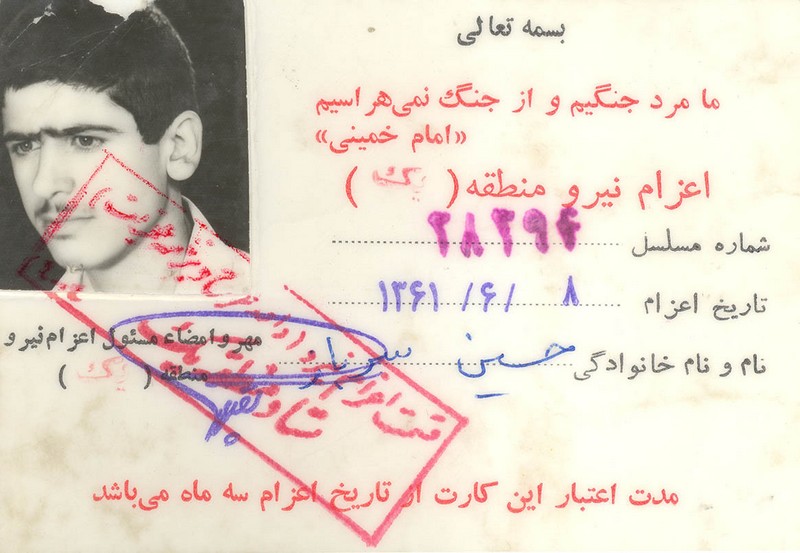 بسمه تعالی
ما مرد جنگیم و از جنگ نمی‌هراسیم
«امام خمینی»
اعزام نیرو منطقه ( یک )
شماره مسلسل ۲۸۲۹۴
تاریخ اعزام ۸ /۶/ ۱۳۶۱
نام و نام خانوادگی حسین سرباز
مهر و امضاء مسئول اعزام نیرو
منطقه ( یک )
مدت اعتبار این کارت از تاریخ اعزام سه ماه می‌باشد